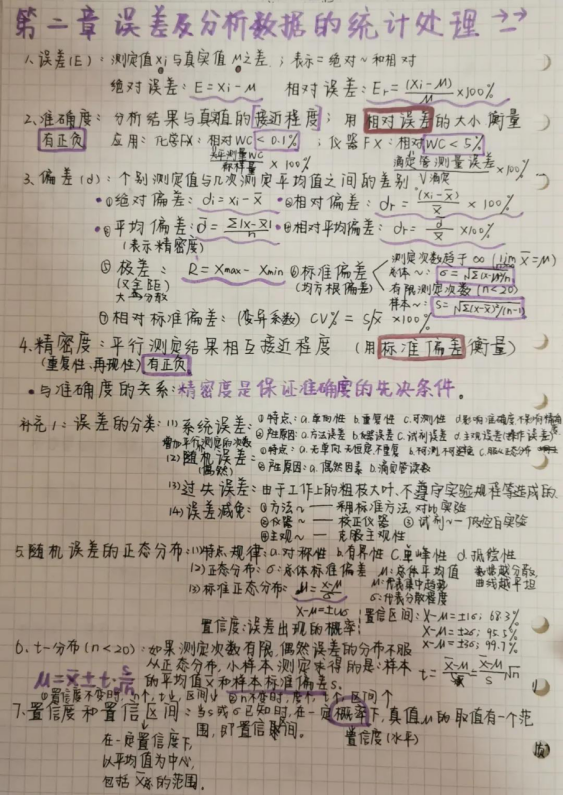 第二章 误差及分析数据的统计处理 →→
1.误差(E):测定值xi与真实值μ之差;表示=绝对~和相对
绝对误差:E=xi-μ 相对误差:Er=(xi-μ)/μ×100%
2.准确度:分析结果与真值的接近程度;用相对误差的大小衡量
有正负 应用:化学FX:相对WC<0.1%;仪器FX:相对WC<5%
×100% 滴定管测量误差/V滴定×100%
3.偏差(d):个别测定值与几次测定平均值之间的差别
·①绝对偏差:di=xi-x̄ ·②相对偏差:dr=(xi-x̄)/x̄×100%
·④平均偏差:d̄=Σ|x-x̄|/n ·③相对平均偏差:dr=d̄/x̄×100%
(表示精密度)
⑤极差:R=Xmax-Xmin ⑥标准偏差 测定次数趋于∞(lim x̄=μ)
(又全距) (均方根偏差) 总体~:σ=√Σ(x-μ)²/n
大≈分散 有限测定次数(n<20)
样本~:s=√Σ(x-x̄)²/(n-1)
⑦相对标准偏差:(变异系数)CV%=S/x̄×100%
4.精密度:平行测定结果相互接近程度(用标准偏差衡量)
(重复性、再现性)有正负
·与准确度的关系:精密度是保证准确度的先决条件。
补充1:误差的分类:(1)系统误差:①特点:a.单向性 b.重复性 c.可测性 d.影响准确度不影响精密度
增加平行测定的次数 ②产生原因:a.方法误差 b.仪器误差 c.试剂误差 d.主观误差(操作误差)
(2)随机误差:①特点:a.无单向、无恒定、不重复 b.可测、不可避免 c.服从正态分布
(偶然) ②产生原因:a.偶然因素 b.滴定管读数
(3)过失误差:由于工作上的粗枝大叶、不遵守实验规程等造成的.
(4)误差减免:①方法~——采用标准方法,对比实验
②仪器~——校正仪器 ③试剂~—做空白实验
④主观~——克服主观性
5.随机误差的正态分布:(1)特点规律:a.对称性 b.有界性 c.单峰性 d.抵偿性
(2)正态分布:σ:总体标准偏差 μ:总体平均值 数据越分散,
(3)标准正态分布:μ=(x-μ)/σ μ:代表集中趋势 曲线越平坦
σ:代表分散程度
x-μ=±uσ
置信度:误差出现的概率 置信区间:x-μ=±1σ;68.3%
x-μ=±2σ;95.5%
x-μ=±3σ;99.7%
6.t-分布(n<20):如果测定次数有限,偶然误差的分布不服
从正态分布,小样本测定求得的是:样本
的平均值x̄和样本标准偏差s;
μ=x̄±t·s/√n
7.置信度和置信区间:当s或σ已知时,在一定概率下,真值μ的取值有一个范
围,即置信区间. 置信度(水平)
在一定置信度下,
以平均值为中心,
包括的范围.